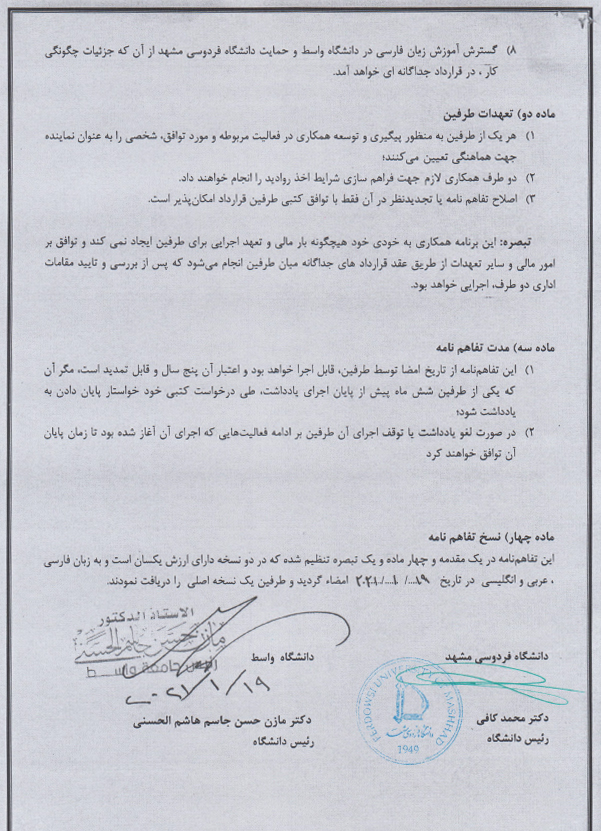 ۸) گسترش آموزش زبان فارسی در دانشگاه واسط و حمایت دانشگاه فردوسی مشهد از آن که جزئیات چگونگی
کار ، در قرارداد جداگانه ای خواهد آمد.
ماده دو) تعهدات طرفین
۱) هر یک از طرفین به منظور پیگیری و توسعه همکاری در فعالیت مربوطه و مورد توافق، شخصی را به عنوان نماینده
جهت هماهنگی تعیین می‌کنند؛
۲) دو طرف همکاری لازم جهت فراهم سازی شرایط اخذ روادید را انجام خواهند داد.
۳) اصلاح تفاهم نامه یا تجدیدنظر در آن فقط با توافق کتبی طرفین قرارداد امکان‌پذیر است.
تبصره: این برنامه همکاری به خودی خود هیچگونه بار مالی و تعهد اجرایی برای طرفین ایجاد نمی کند و توافق بر
امور مالی و سایر تعهدات از طریق عقد قرارداد های جداگانه میان طرفین انجام می‌شود که پس از بررسی و تایید مقامات
اداری دو طرف، اجرایی خواهد بود.
ماده سه) مدت تفاهم نامه
۱) این تفاهم‌نامه از تاریخ امضا توسط طرفین، قابل اجرا خواهد بود و اعتبار آن پنج سال و قابل تمدید است، مگر آن
که یکی از طرفین شش ماه پیش از پایان اجرای یادداشت، طی درخواست کتبی خود خواستار پایان دادن به
یادداشت شود؛
۲) در صورت لغو یادداشت یا توقف اجرای آن طرفین بر ادامه فعالیت‌هایی که اجرای آن آغاز شده بود تا زمان پایان
آن توافق خواهند کرد
ماده چهار) نسخ تفاهم نامه
این تفاهم‌نامه در یک مقدمه و چهار ماده و یک تبصره تنظیم شده که در دو نسخه دارای ارزش یکسان است و به زبان فارسی
، عربی و انگلیسی در تاریخ ۱۹.../...۱.../۲۰۲۱ امضاء گردید و طرفین یک نسخه اصلی را دریافت نمودند.
الاستاذ الدكتور
مازن حسن جاسم الحسني
رئيس جامعة واسط
۲۰۲۱/۱/۱۹
دانشگاه فردوسی مشهد
دانشگاه واسط
FERDOWSI UNIVERSITY OF MASHHAD
دانشگاه فردوسی مشهد
1949
دکتر محمد کافی
دکتر مازن حسن جاسم هاشم الحسنی
رئیس دانشگاه
رئیس دانشگاه